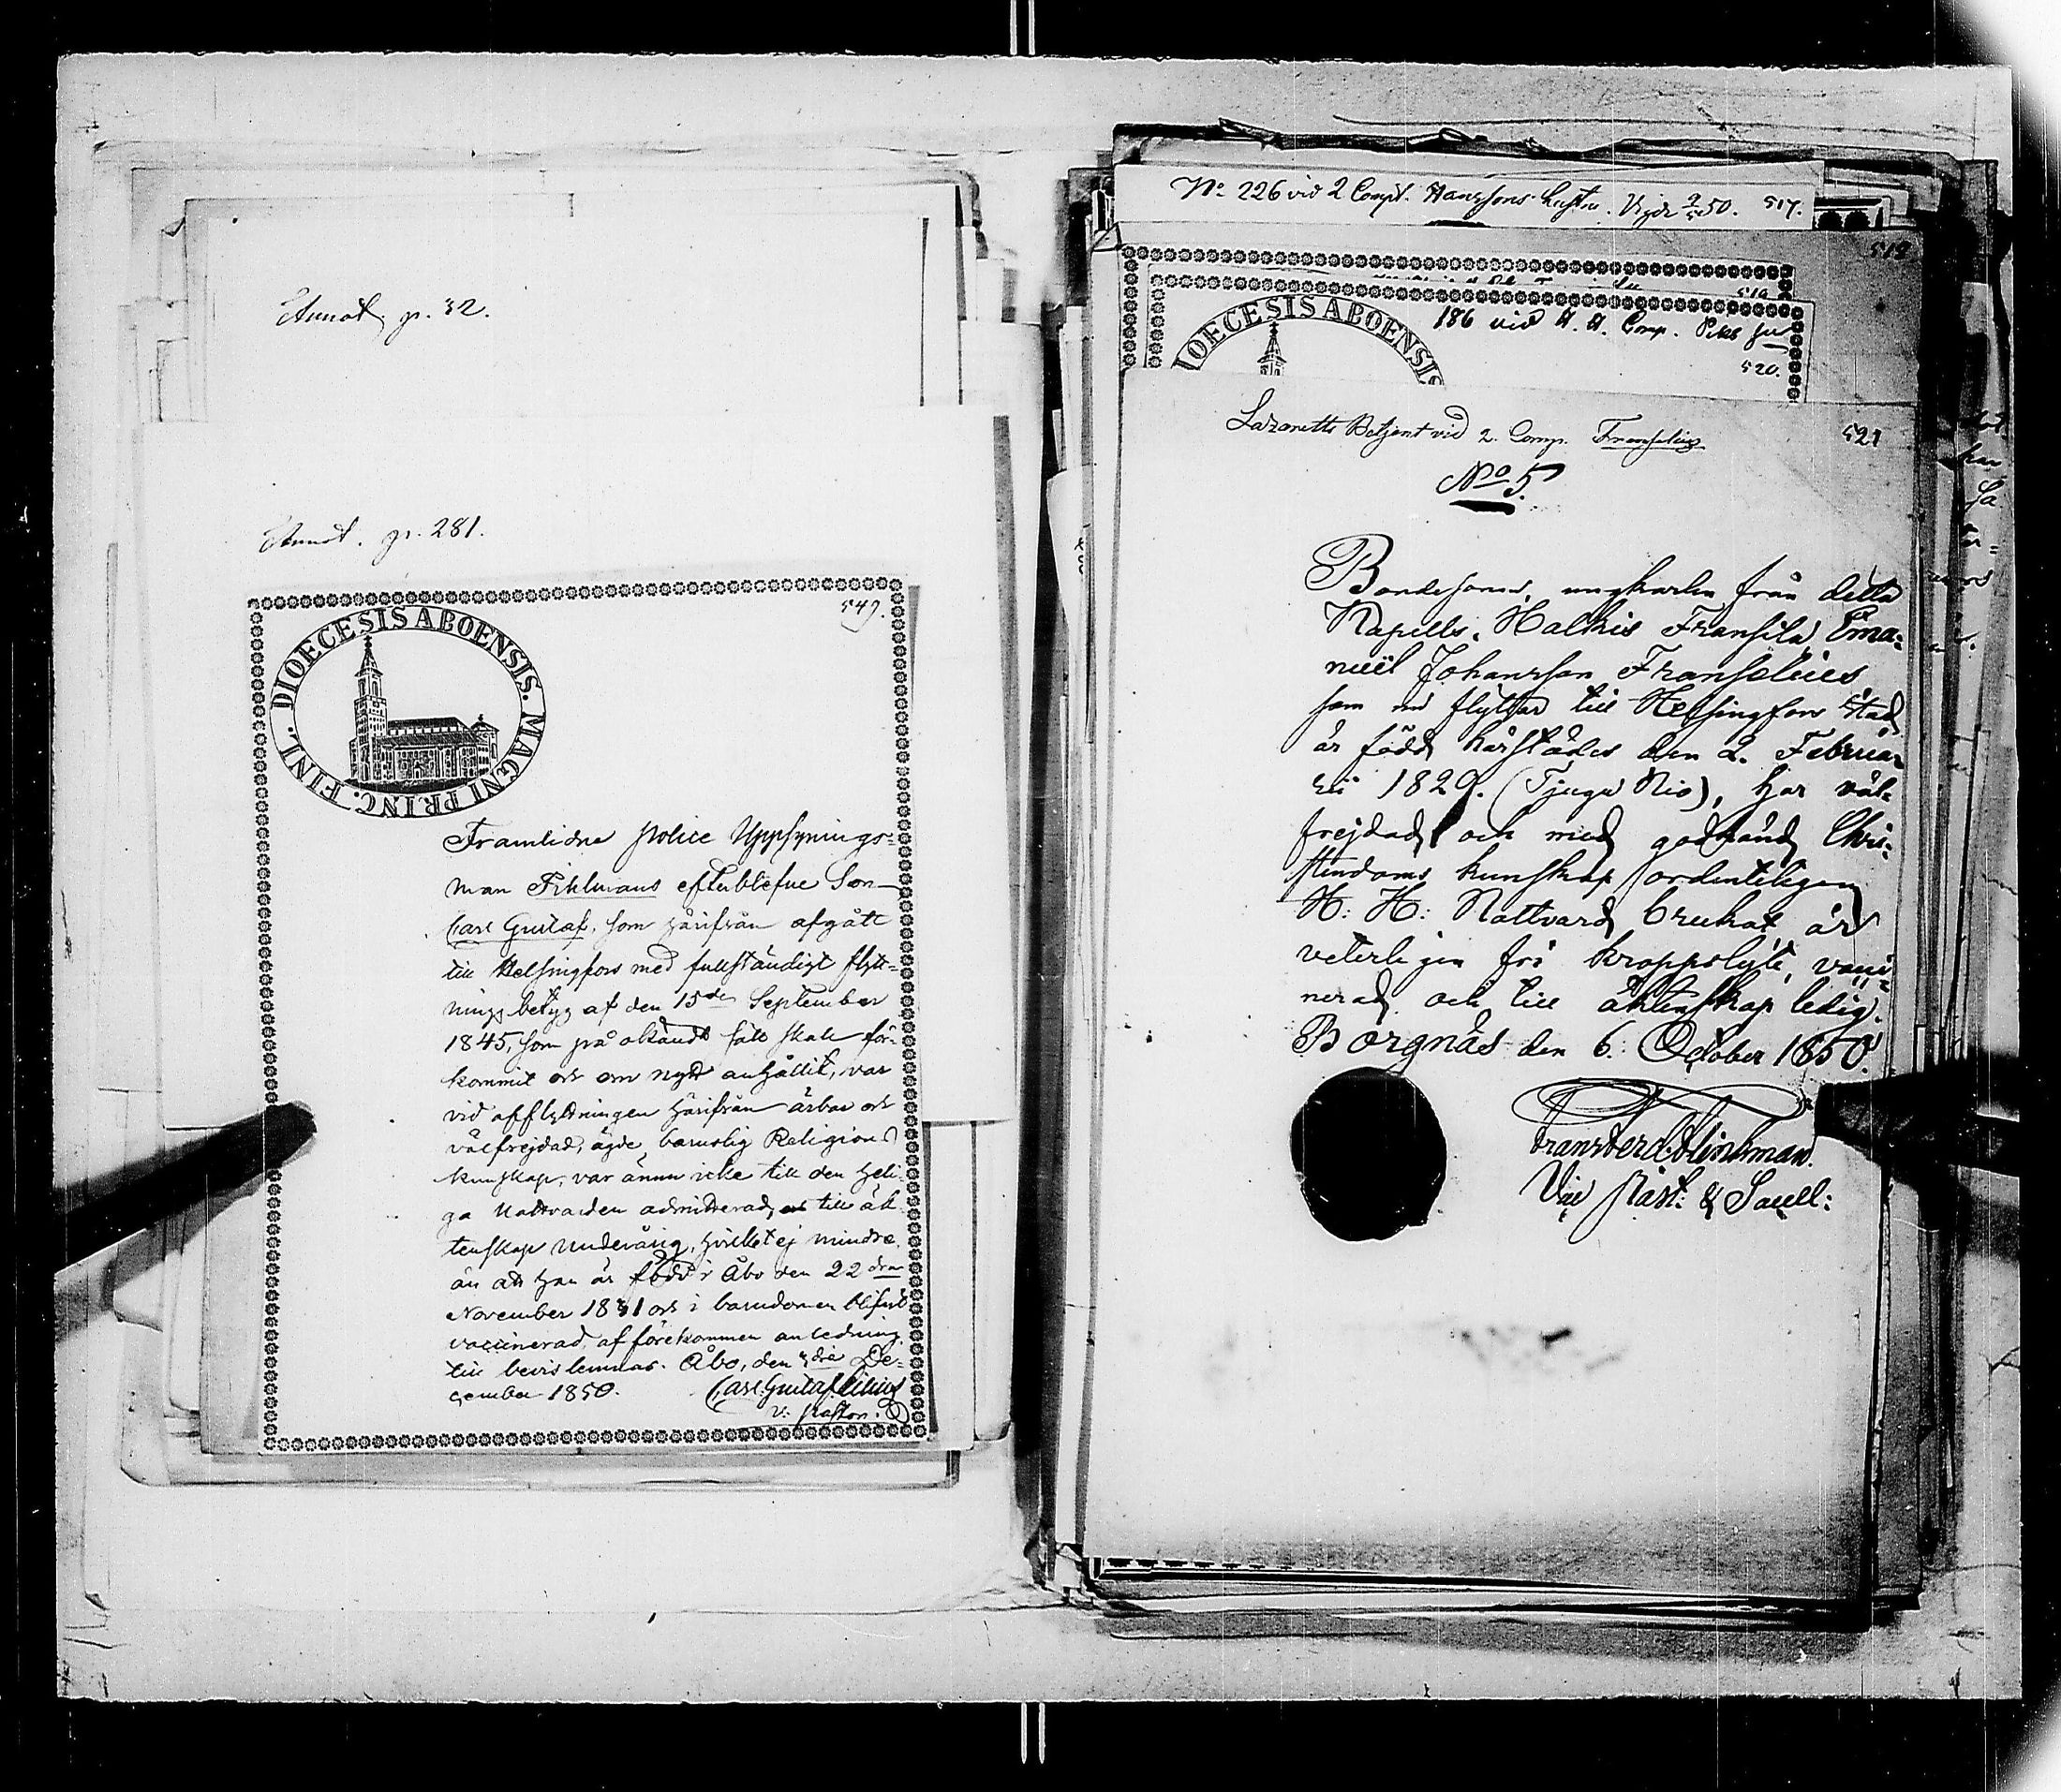 Annot. p. 32.
Annot. p. 281.
549.
DIOECESIS ABOENSIS. MAGNI PRINC. FINL.
Framlidne police Uppsynings-
man Pihlmans efterblefne Son
Carl Gustaf, som härifrån afgått
till Helsingfors med fullständigt flytt-
nings betyg af den 15de September
1845, som på okändt sätt skall för-
kommit och om nytt anhållit, var
vid afflyttningen härifrån ärbar och
välfrejdad, ägde barnslig Religions
kunskap, var ännu icke till den Heli-
ga Nattvarden admitterad, och till äk-
tenskap underårig, hvilket ej mindre
än att han är född i Åbo den 22dra
November 1831 och i barndomen blifvit
vaccinerad, af förekommen anledning
till bevis lemnas. Åbo, den dra De-
cember 1850. Carl Gustaf
v. pastor.
No 226 vid 2 Comp. Hanssons hustru. 50. 517.
518
519
186 vid Comp.
520.
DIOECESIS ABOENSIS
Lazaretts Betjent vid 2. Comp. Franselius
521
No 5.
Bondesonen, ungkarlen från detta
Kapells, Halkis Fransila, Ema-
nuël Johansson Franselius
som nu flyttar till Helsingfors Stad
är född härstädes den 2. Februa-
rii 1829. (Tjugu Nio), har väl-
frejdad och med godkänd Chri-
stendoms kunskap ordenteligen
H: H: Nattvard brukat är
veterligen fri kroppslyte, vacci-
nerad och till äktenskap ledig.
Borgnäs den 6. October 1850.
Vice Past: & Sacell: